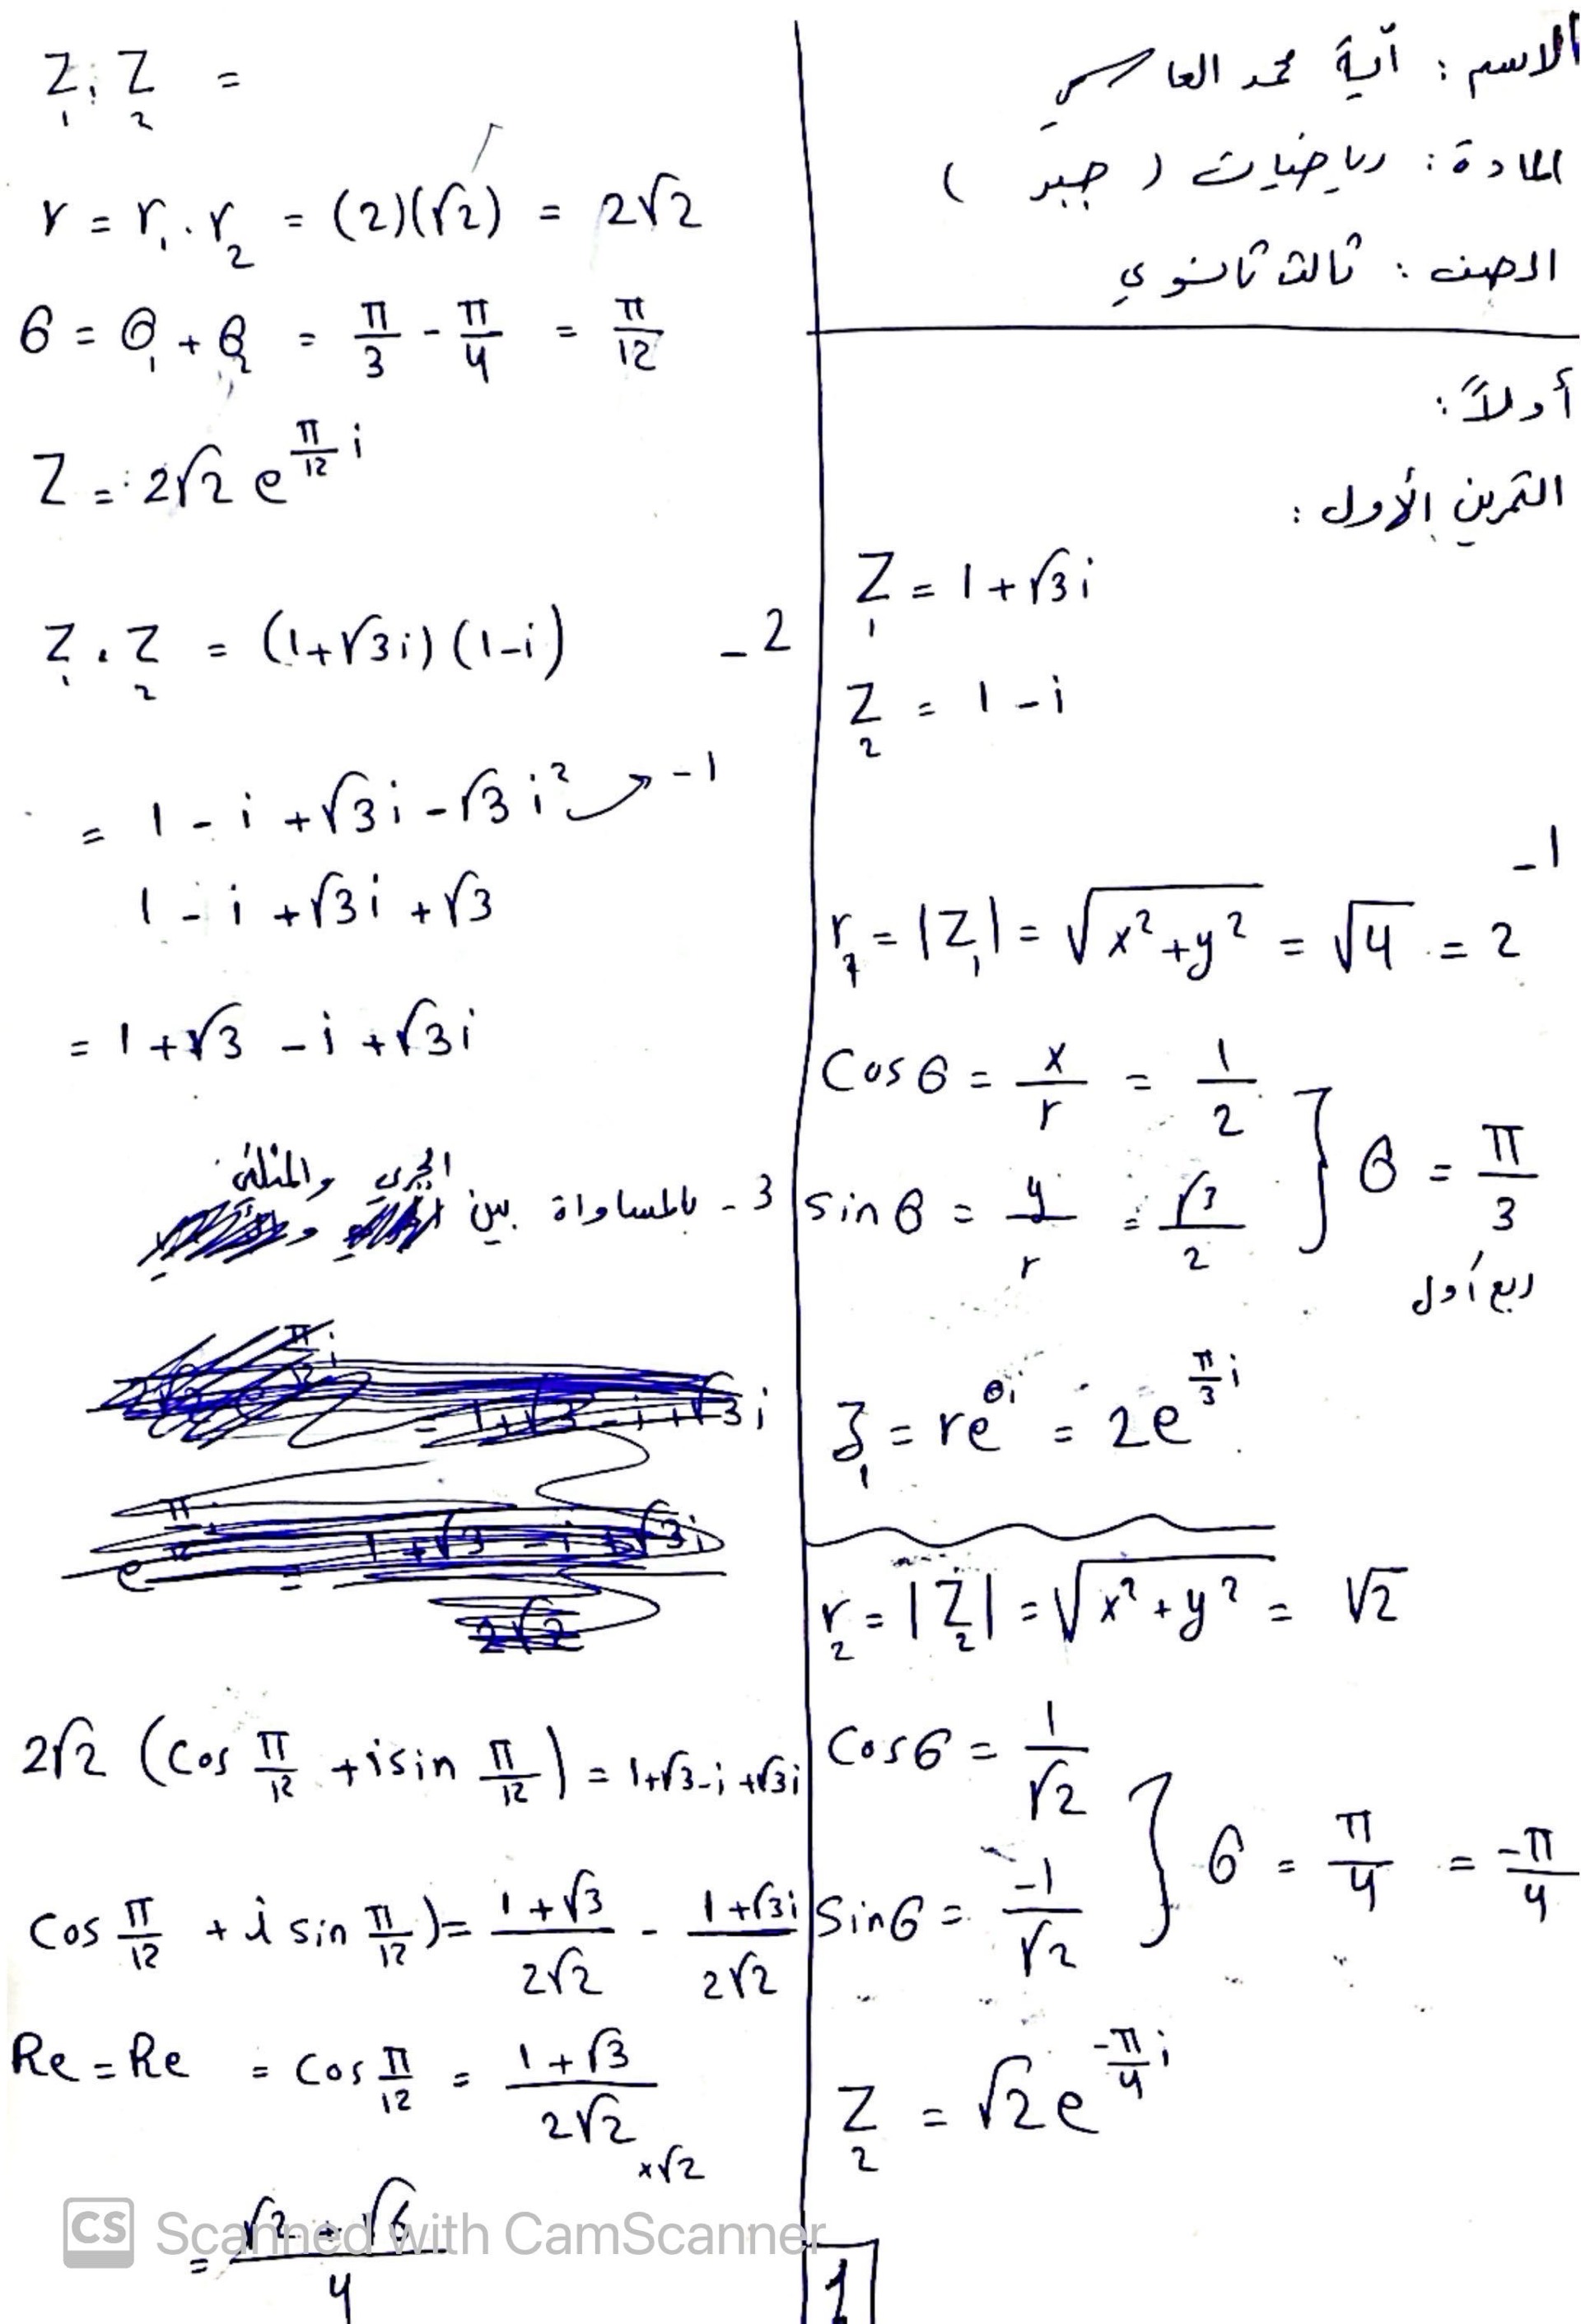 الاسم : آية محمد العاصي
المادة : رياضيات ( جبر )
الصف : ثالث ثانوي
أولاً :
التمرين الأول :
Z₁ = 1 + √3 i
Z₂ = 1 - i
-1
r₁ = |Z₁| = √(x² + y²) = √4 = 2
Cos θ = x/r = 1/2
sin θ = y/r = √3/2 } θ = π/3
ربع أول
z₁ = re^(θi) = 2e^(π/3 i)
r₂ = |Z₂| = √(x² + y²) = √2
Cos θ = 1/√2
Sin θ = -1/√2 } θ = π/4 = -π/4
Z₂ = √2 e^(-π/4 i)
1
Z₁ . Z₂ =
r = r₁ . r₂ = (2)(√2) = 2√2
θ = θ₁ + θ₂ = π/3 - π/4 = π/12
Z = 2√2 e^(π/12 i)
-2 Z₁ . Z₂ = (1+√3i)(1-i)
= 1 - i + √3i - √3 i² → -1
1 - i + √3i + √3
= 1 + √3 - i + √3i
3 - بالمساواة بين الجبري والمثلثي
2√2 (cos π/12 + i sin π/12) = 1+√3-i+√3i
cos π/12 + i sin π/12) = (1+√3)/(2√2) - (1+√3i)/(2√2)
Re = Re = cos π/12 = (1+√3)/(2√2) ×√2
= (√2 + √6)/4
CS Scanned with CamScanner